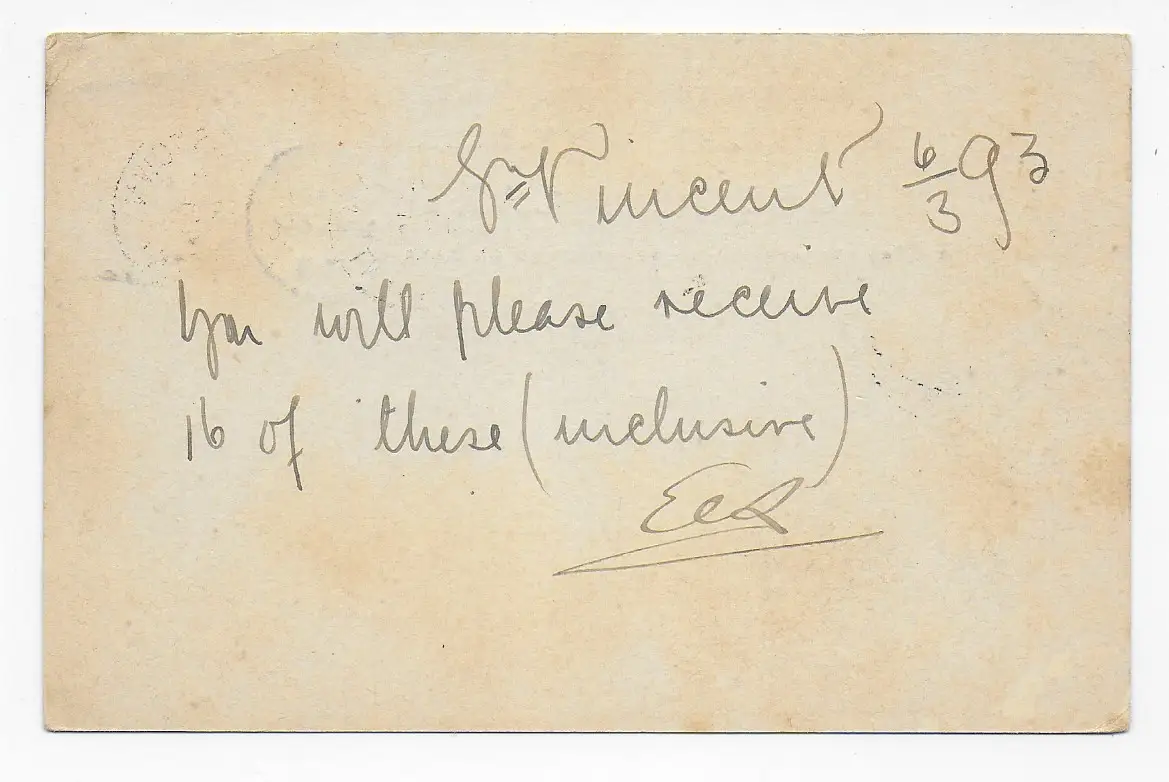 St Vincent 6/3 93
You will please receive
16 of these (inclusive)